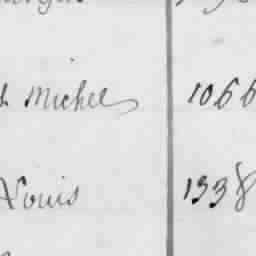 Michel 1066
Louis 1338